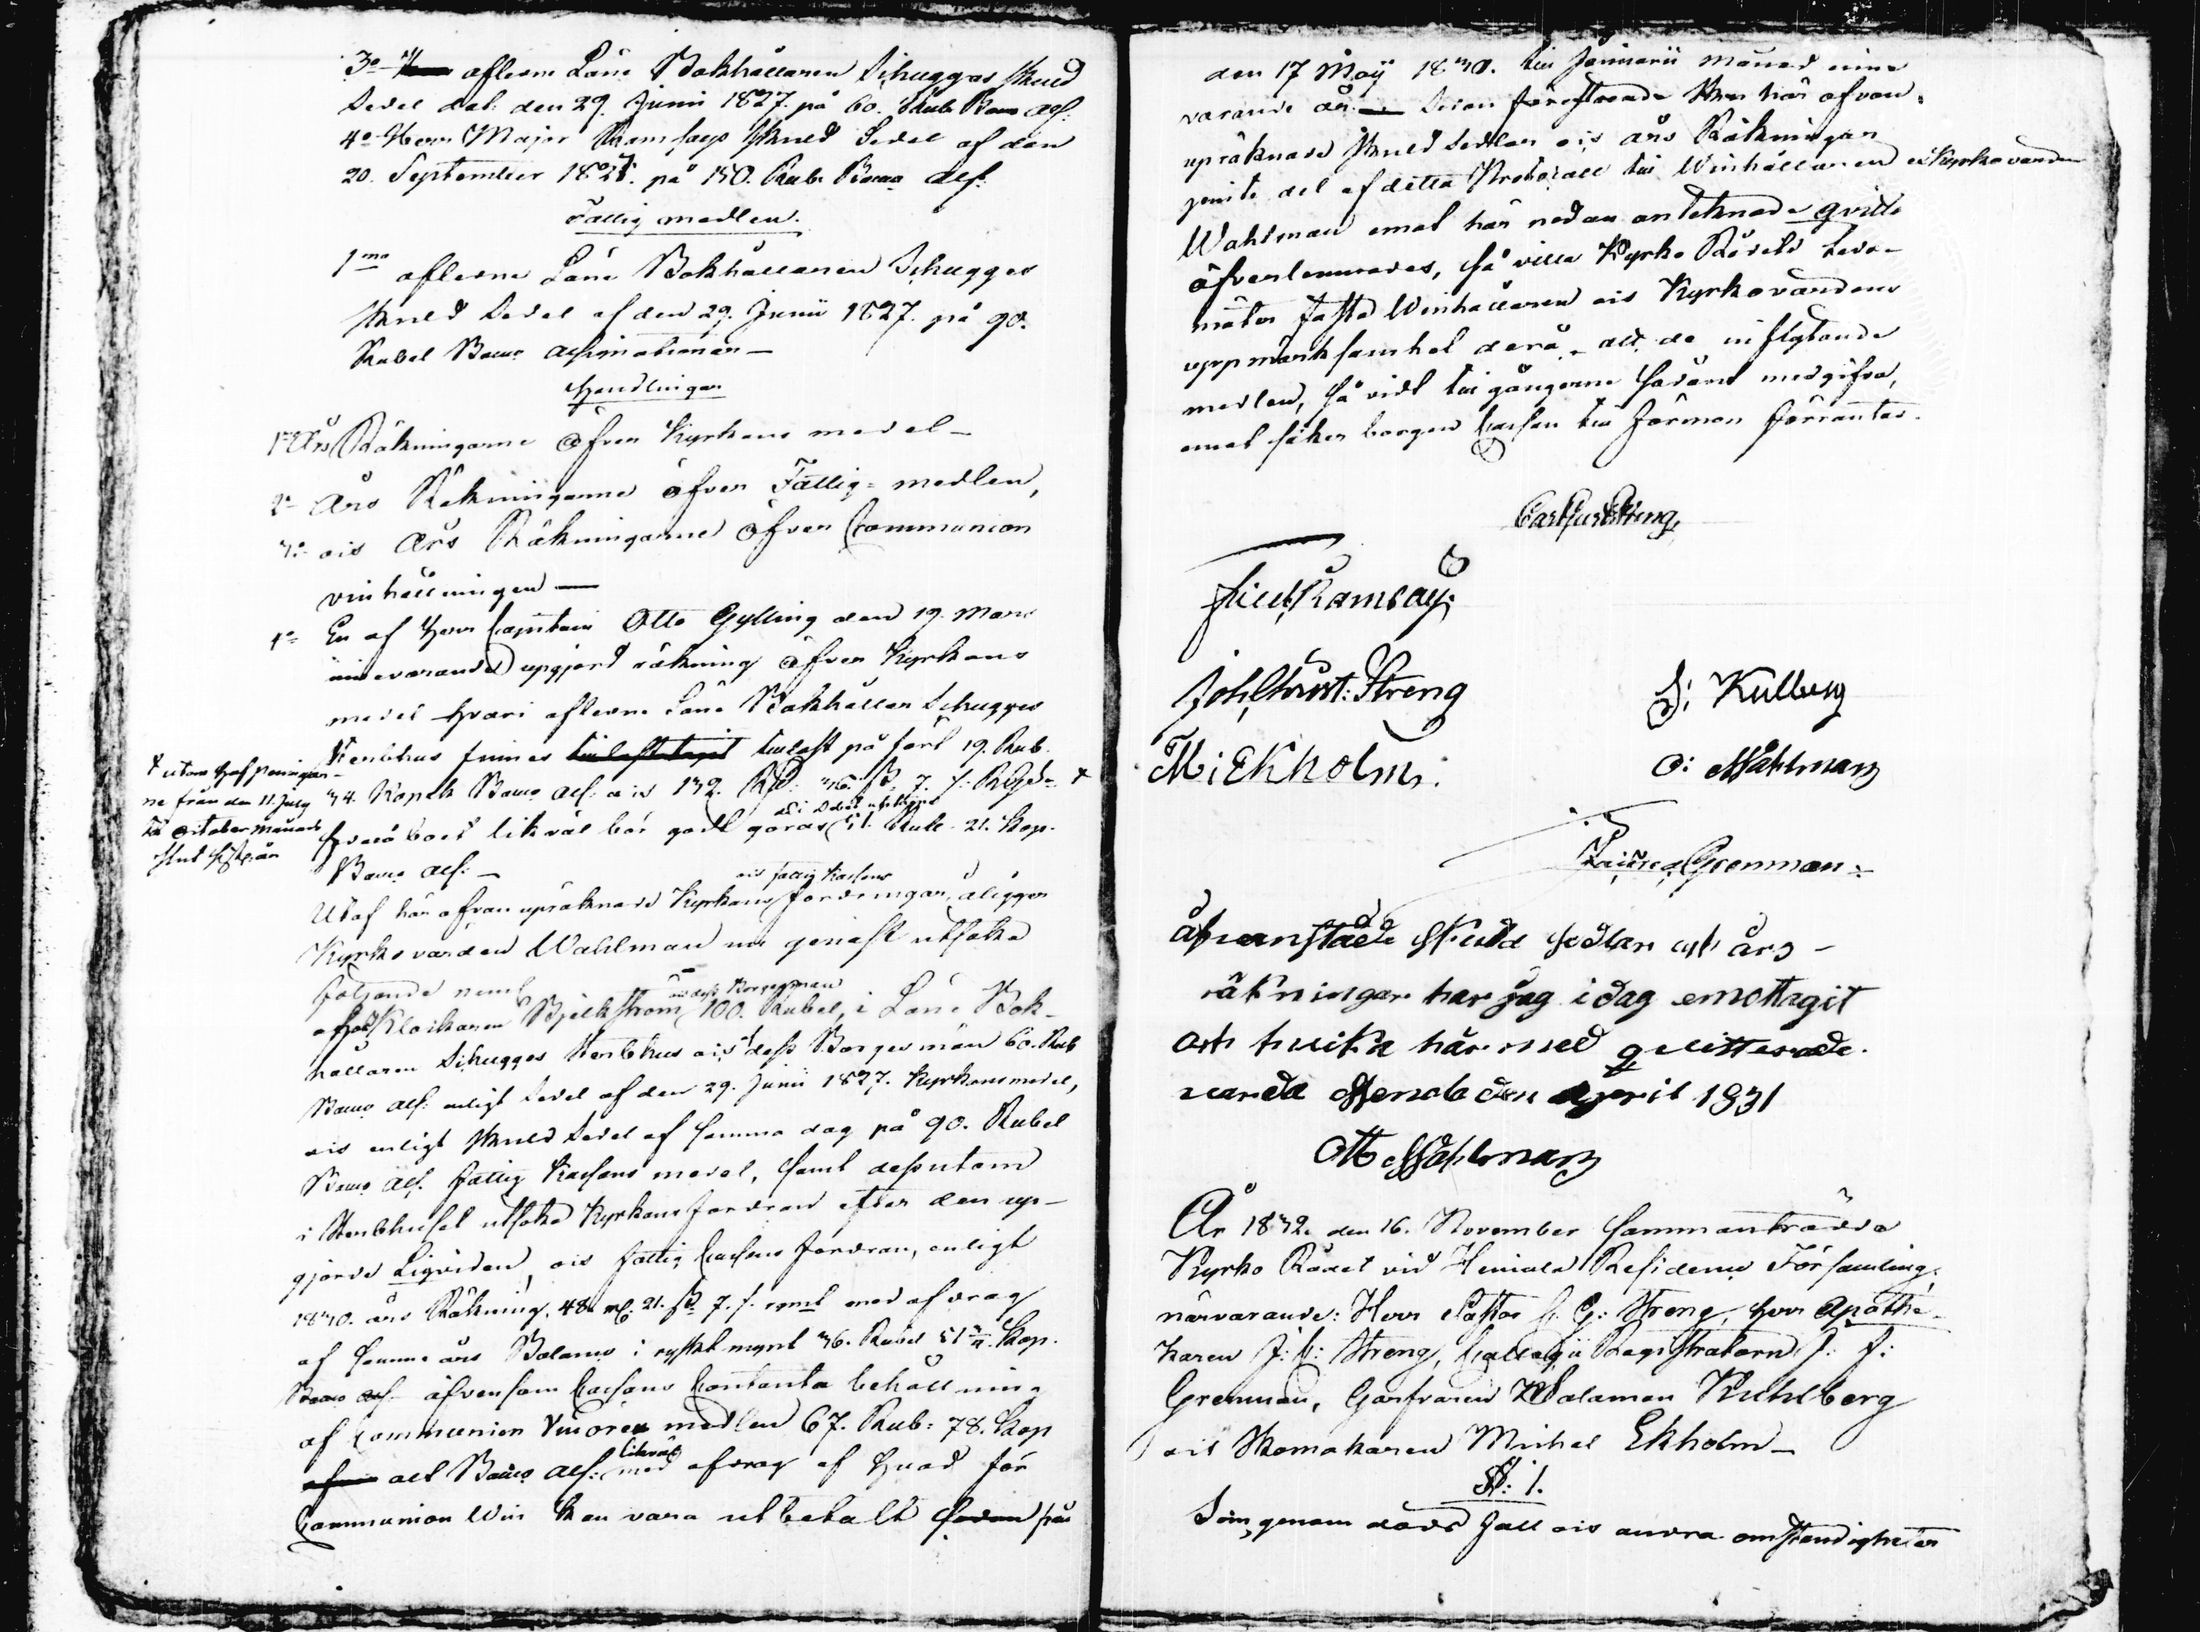 3o aflidne Läns Bokhållaren Schugges Skuld
Sedel dat. den 29. Junii 1827. på 60. Rub. B:co ass:
4o Herr Major Ramsays Skuld Sedel af den
20. September 182 på 150. Rub. Banco ass:
Fattig medlen.
1mo aflidne Läns Bokhållaren Schugges
Skuld Sedel af den 29. Junii 1827. på 90.
Rubel Banco assignationer —
Handlingar
1mo Års Räkningarne öfver Kyrkans medel —
2o Års Räkningarne öfver Fattig-medlen,
3o och Års Räkningarne öfver Communion
vinhållningen —
4o En af Herr Capitain Otto Gylling den 19. Mars
innevarande upgjord räkning öfver Kyrkans
medel hvari aflidne Läns Bokhållar Schugges
Sterbhus finnes på förd 19. Rub.
34. Kopek Banco ass: och 132. 36. sk. 7. r: Rgs +
+ utom
ne från den 11. July
till October månads
slut sistl. år
likväl bör godt göras 51. Rub. 21. Kop.
Banco ass: —
och fattig Kassans
Utaf här ofvan upräknade Kyrkans fordringar, åligger
Kyrkovärden Wahlman nu genast utsöka
följande neml.
och dess Borgesman
af Klockaren Bjelkström 100. Rubel, i Läns Bok-
hållaren Schugges Sterbhus och dess Borgesmän 60. Rub
Banco ass: enligt Sedel af den 29. Junii 1827. Kyrkans medel,
och enligt Skuld Sedel af samma dag på 90. Rubel
Banco ass. fattig Kassans medel, samt dessutom
i Sterbhuset utsöka Kyrkans fordran efter den up-
gjorde Liqviden, och fattig Cassans fordran, enligt
1830. års Räkning, 48. 21. sk. 7. r. med afdrag
af samma års Balance i ryskt mynt 36. Rubel 51 Kop.
Banco ass. äfvensom Cassans Contanta behållning
af Communion medlen 67. Rub: 78. Kop
likväl
allt Banco ass: med afdrag af hvad för
Communion Win kan vara utbetalt från
den 17 Maij 1830. till Januarii månad inne
varande år — Sedan förestående här ofvan
upräknade Skuld Sedlar och års Räkningar
jemte del af detta Protocoll till Winhållaren och Kyrkovärden
Wahlman emot här nedan antecknade qvitto
öfverlemnades, så ville Kyrko Rådets leda-
möter fästa Winhållaren och Kyrkovärdens
uppmärksamhet derå, att de inflytande
medlen, så vidt tillgångarne sådant medgifva,
emot säker borgen Cassan till förmon förräntas.
Carl Gust Streng
Fried. Ramsay.
Joh. Christ: Streng
S: Kullberg
M: Ekholm.
O: Wahlman
Grenman
ofvanstående Skuld sedlar och års-
räkningar har jag i dag emottagit
och hvilka härmed qvitterade
varda Heinola den April 1831
Otto Wahlman
År 1832. den 16. November sammanträdde
Kyrko Rådet vid Heinola Residence Församling,
närvarande: Herr Pastor C. G: Streng, Herr Apothe-
karen J: C: Streng, Collegii Registratorn J: F:
Grenman, Garfvaren Salomon Kuhlberg
och Skomakaren Michel Ekholm —
§: 1.
Som genom döds fall och andra omständigheter